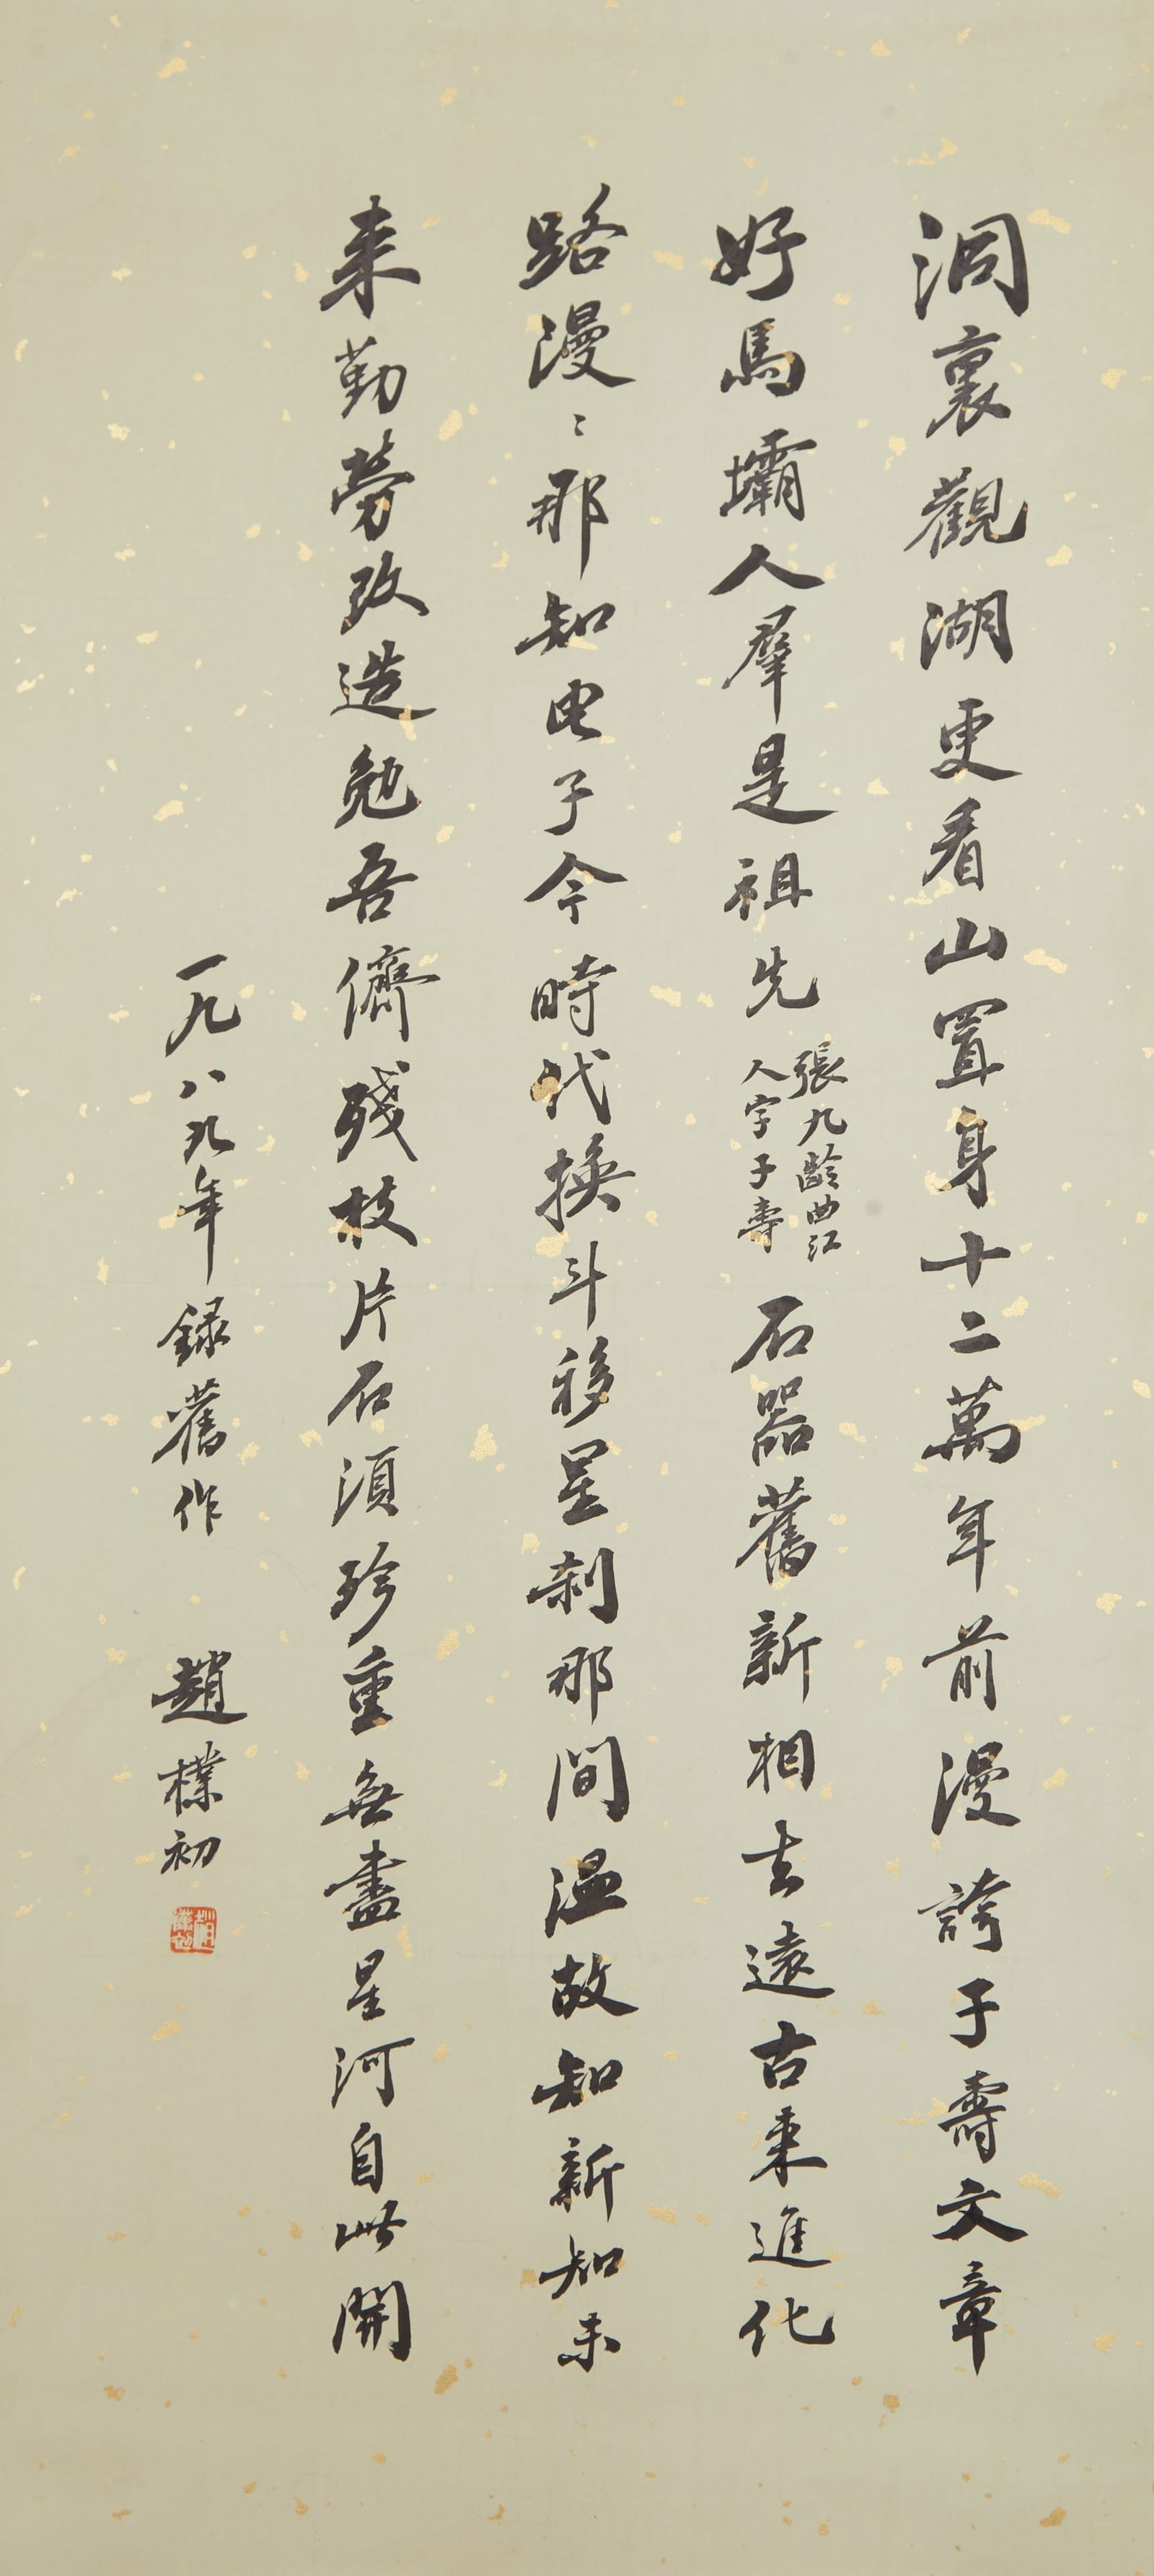 洞裏觀湖更看山置身十二萬年前漫誇子壽文章
好馬壩人羣是祖先
張九齡曲江
人字子壽
石器舊新相去遠古來進化
路漫〻那知电子今時代換斗移星刹那間温故知新知未
来勤勞改造勉吾儕殘枝片石須珍重無盡星河自此開
一九八九年錄舊作
趙樸初
趙樸初